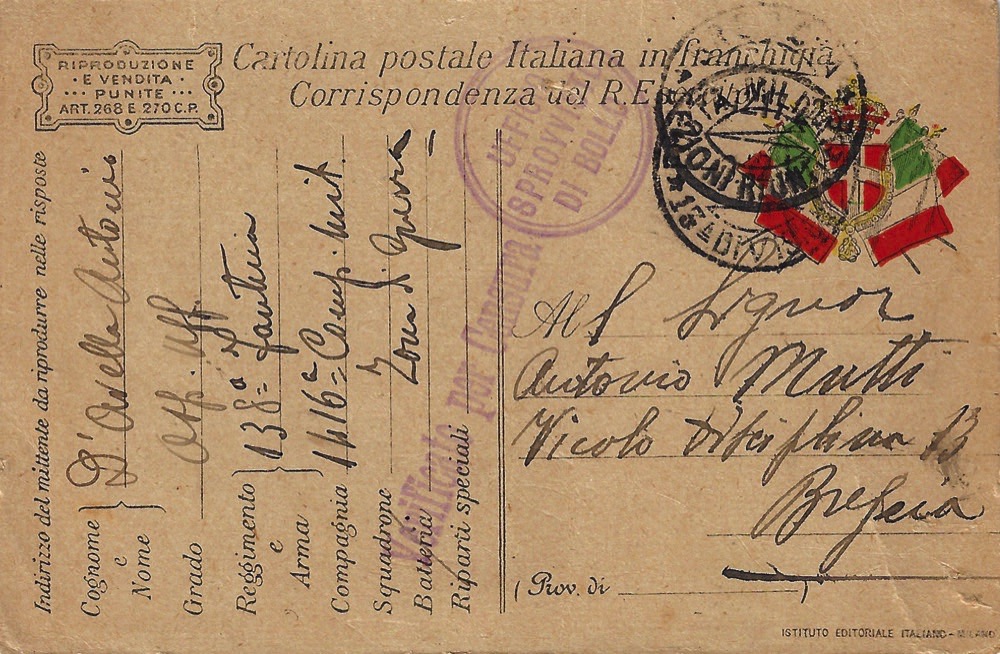 RIPRODUZIONE
E VENDITA
PUNITE
ART. 268 E 270 C.P.
Cartolina postale Italiana in franchigia
Corrispondenza del R. Esercito
UFFICIO
SPROVVISTO
DI BOLLO
Verificato per Censura
Indirizzo del mittente da riprodurre nelle risposte
Cognome e Nome D' Antonio
Grado Uff.
Reggimento e Arma 138ª Fanteria
Compagnia 1416ª Comp. mit.
Squadrone
Batteria Zona di Guerra
Riparti speciali
Al Signor
Antonio Mutti
Vicolo Disciplina 13
Brescia
(Prov. di )
ISTITUTO EDITORIALE ITALIANO - MILANO